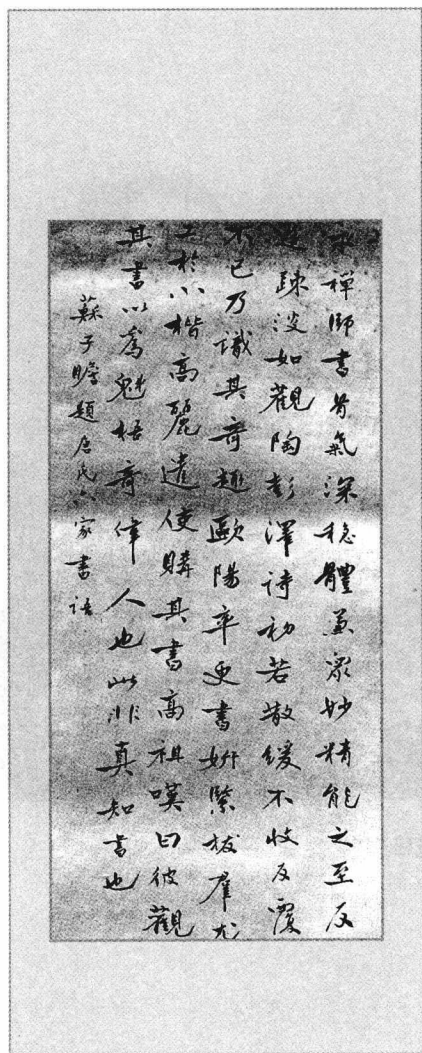 永禪師書骨氣深穩體兼衆妙精能之至反
造疎淡如觀陶彭澤詩初若散緩不收反覆
不已乃識其奇趣歐陽率更書妍緊拔羣尤
工於小楷高麗遣使購其書高祖嘆曰彼觀
其書以爲魁梧奇偉人也此非真知書也
蘇子瞻題唐氏六家書語